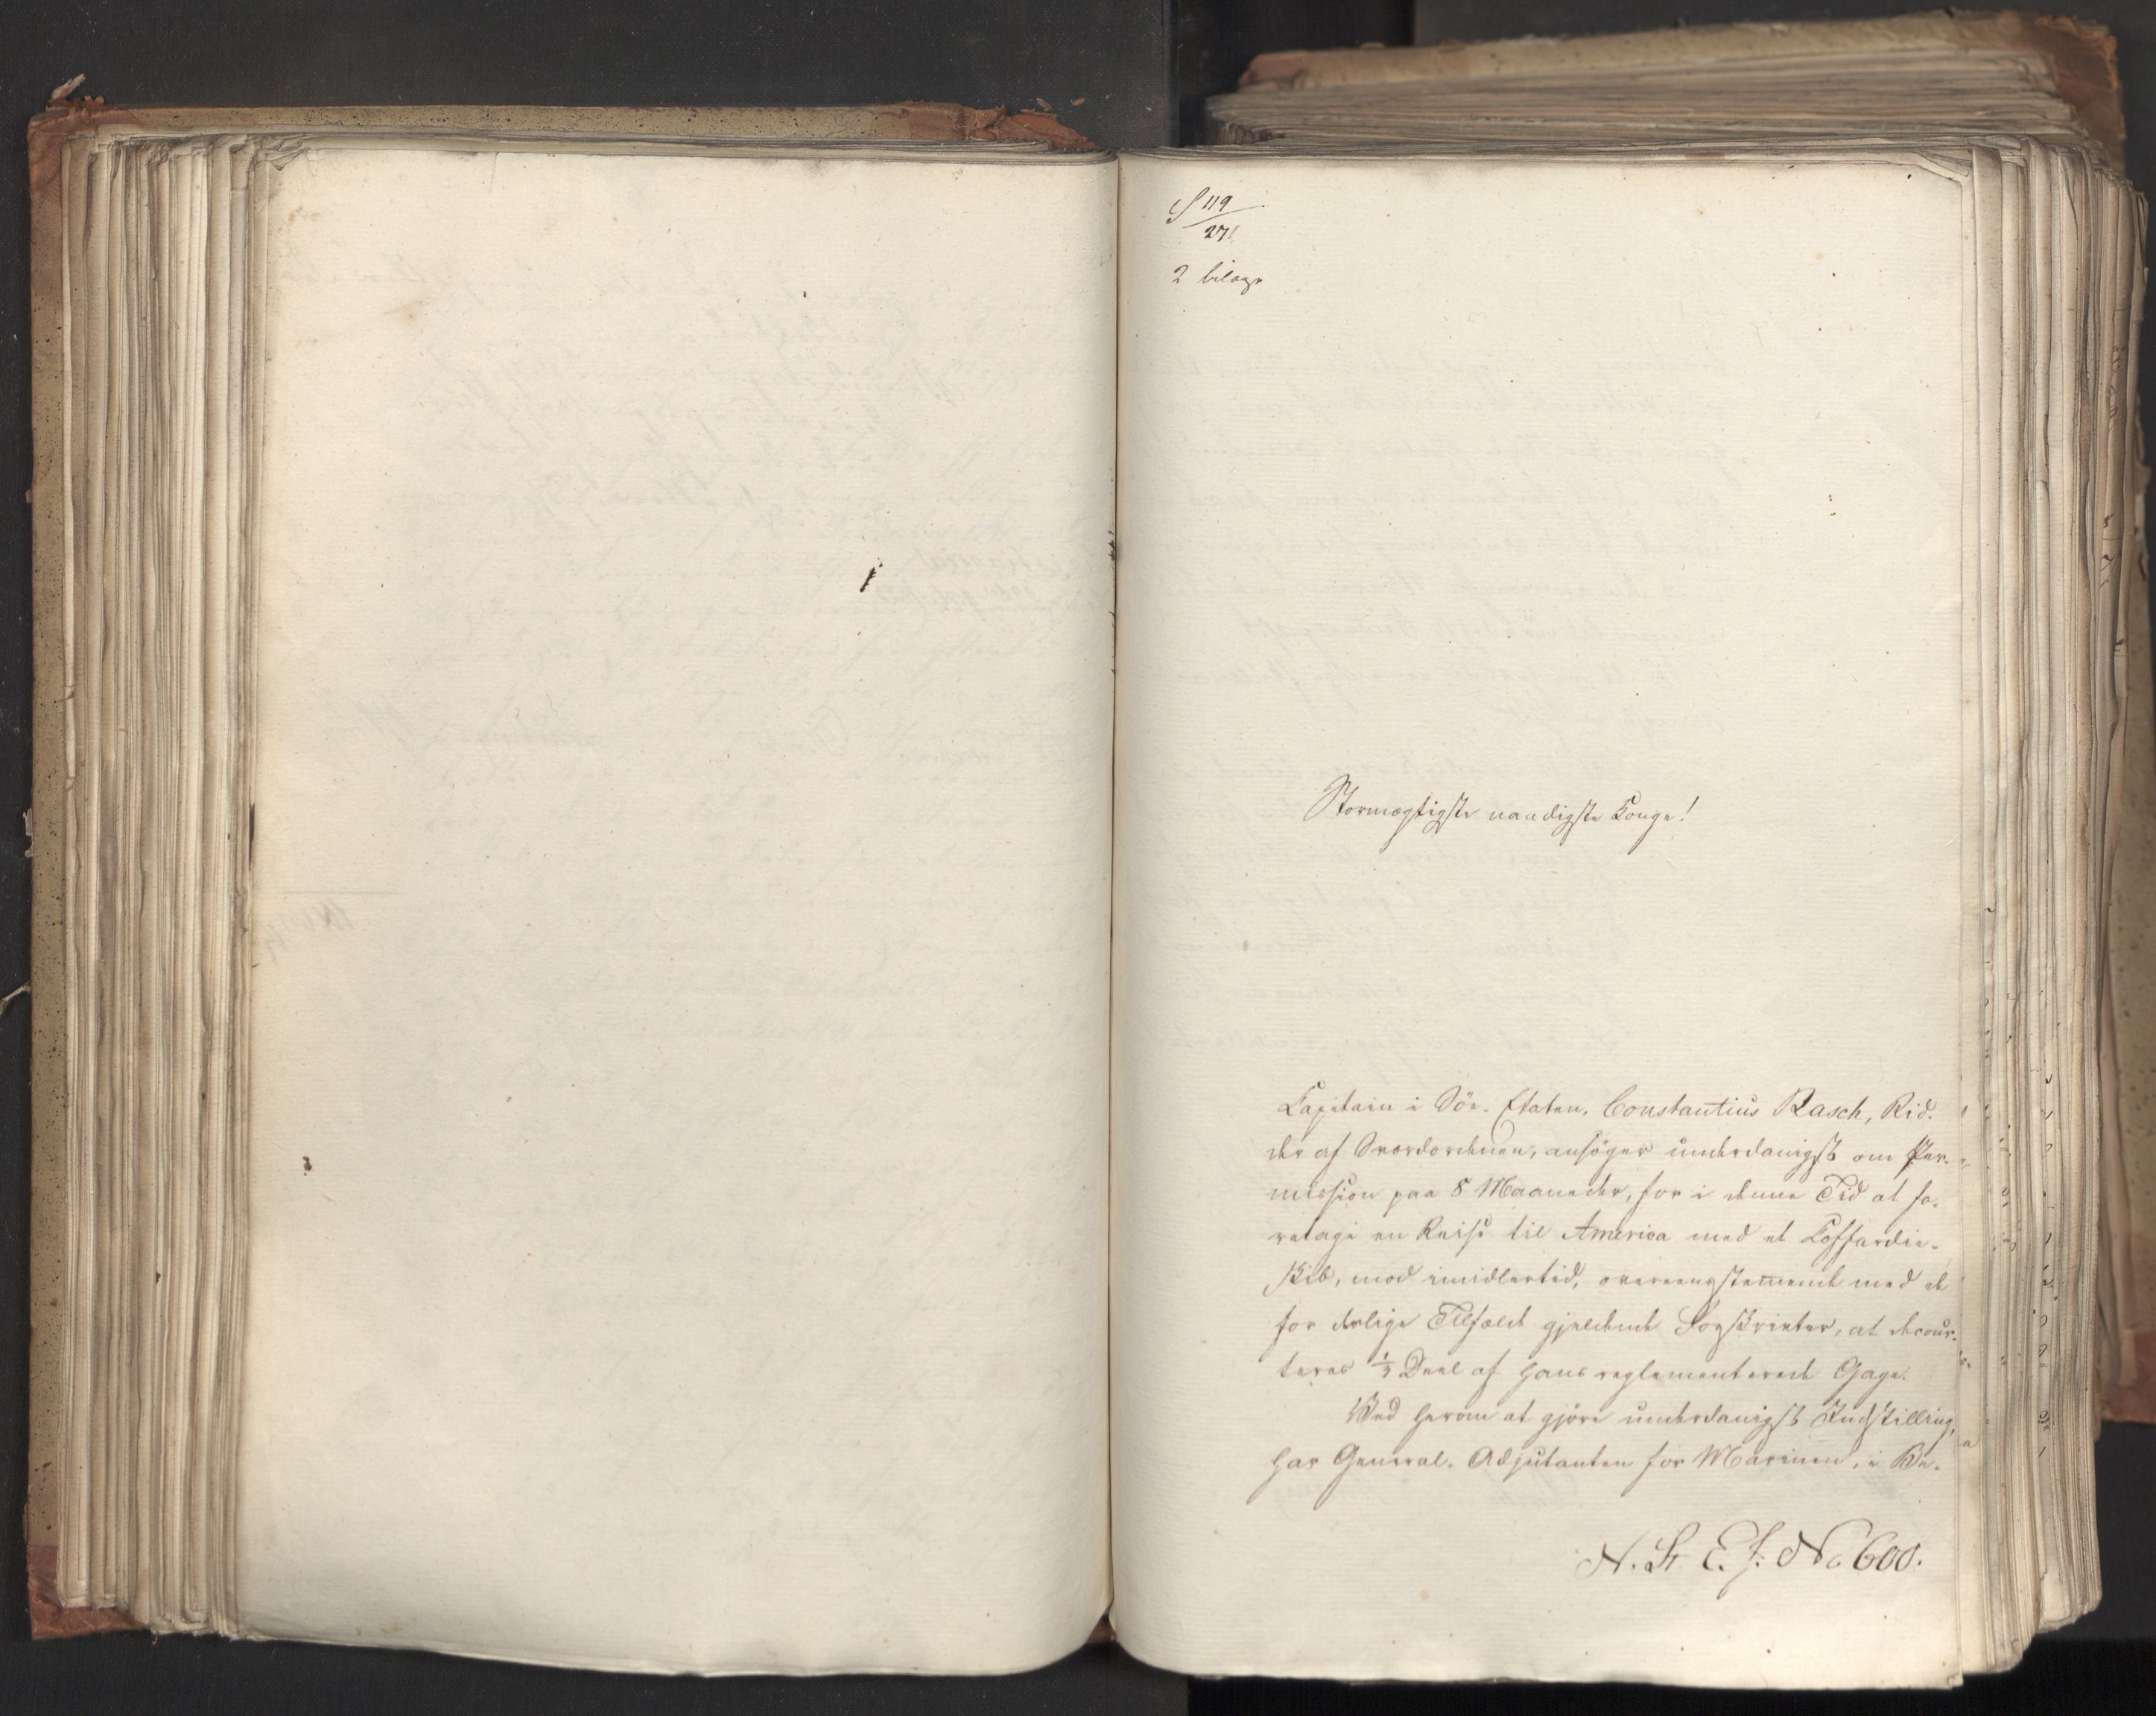 S 119
27/
2 bilage
Stormægtigste naadigste Konge!
Capitain i Söe-Etaten, Constantius Rasch, Rid-
der af Sværdordenen, ansöger underdanigst om Per-
mission paa 8 Maaneder, for i denne Tid at fo-
retage en Reise til America med et Coffardie-
skib, mod imidlertid, overeensstemmende med de
for deslige Tilfælde gjeldende Forskrivter, at decour-
teres 1/3 Deel af hans reglementerede Gage.
Ved herom at gjöre underdanigst Indstilling,
har General-Adjutanten for Marinen, i Be-
N. St. E. J. No 600.